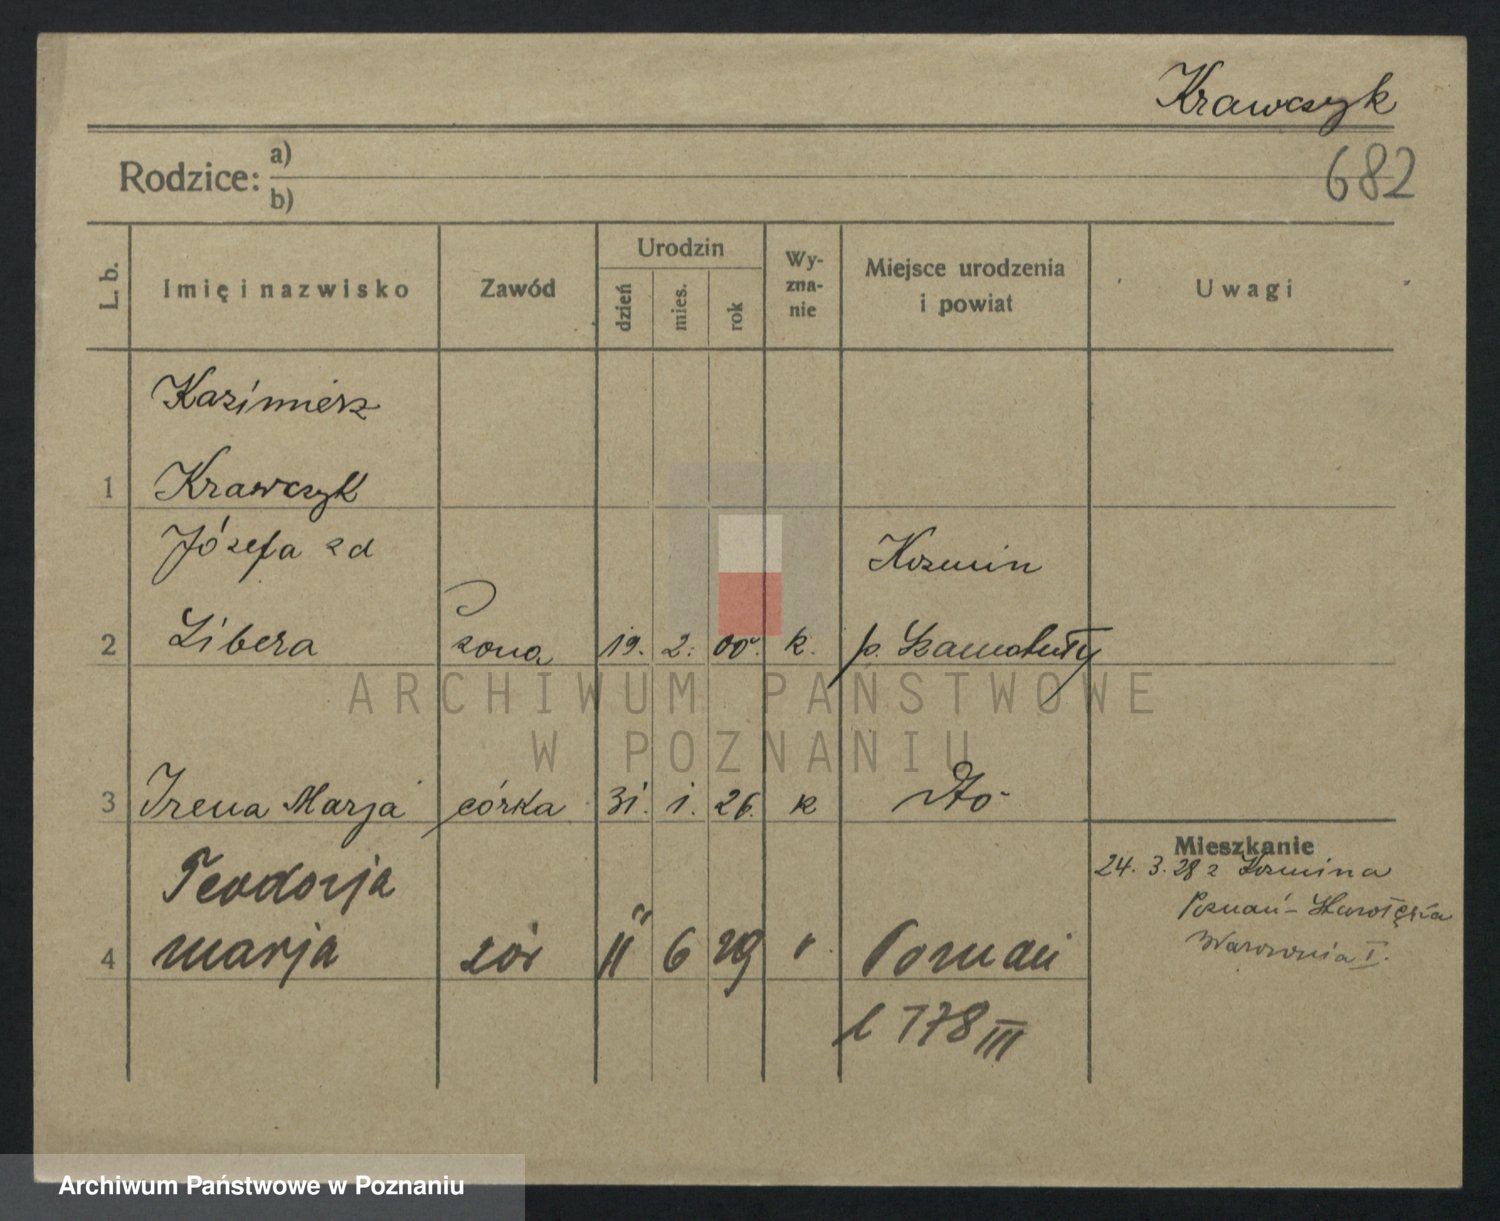 Krawczyk
682
Rodzice: a)
b)
L. b.
Imię i nazwisko
Zawód
Urodzin
dzień
mies.
rok
Wy-
zna-
nie
Miejsce urodzenia
i powiat
Uwagi
Kazimierz
1 Krawczyk
Józefa zd Kozmin
2 Libera żona 19. 2. 00. k. p. Szamotuły
3 Irena Marja córka 31. 1. 26. k dto
Mieszkanie
24. 3. 28 z Kozmina
Teodozja
Poznań-
4 marja 11 6 29 " Poznań
I.
l 778 III
ARCHIWUM PAŃSTWOWE
W POZNANIU
Archiwum Państwowe w Poznaniu